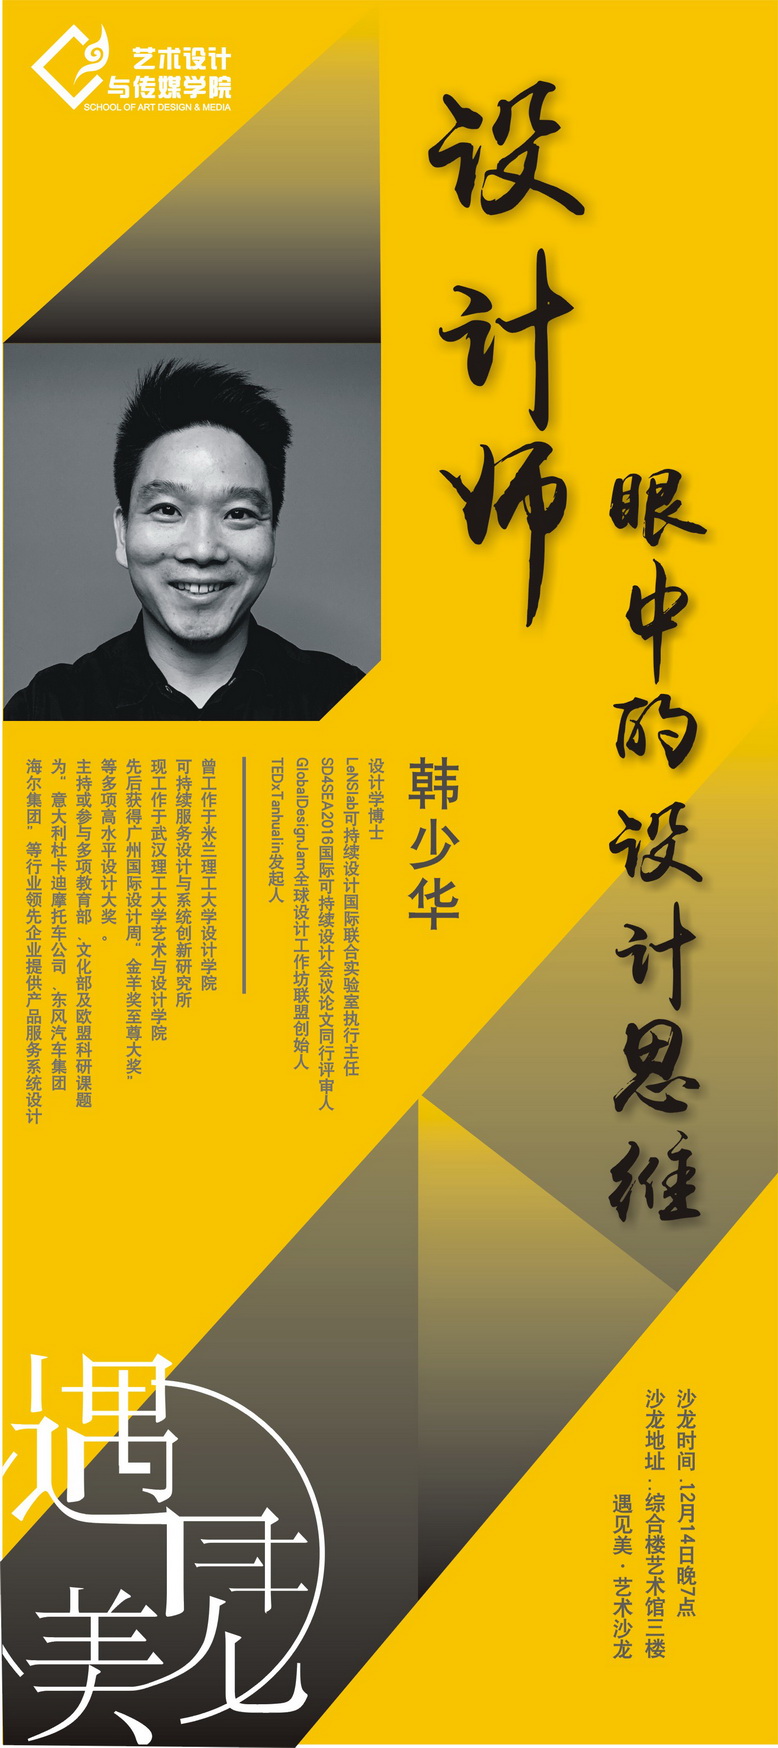 艺术设计
与传媒学院
SCHOOL OF ART DESIGN & MEDIA
设计师
眼中的设计思维
韩少华
设计学博士
LeNSlab可持续设计国际联合实验室执行主任
SD4SEA2016国际可持续设计会议论文同行评审人
GlobalDesignJam全球设计工作坊联盟创始人
TEDxTanhualin发起人
曾工作于米兰理工大学设计学院
可持续服务设计与系统创新研究所
现工作于武汉理工大学艺术与设计学院
先后获得广州国际设计周"金羊奖至尊大奖"
等多项高水平设计大奖。
主持或参与多项教育部、文化部及欧盟科研课题
为"意大利杜卡迪摩托车公司、东风汽车集团
海尔集团"等行业领先企业提供产品服务系统设计
沙龙时间:12月14日晚7点
沙龙地址:综合楼艺术馆三楼
遇见美·艺术沙龙
遇见美